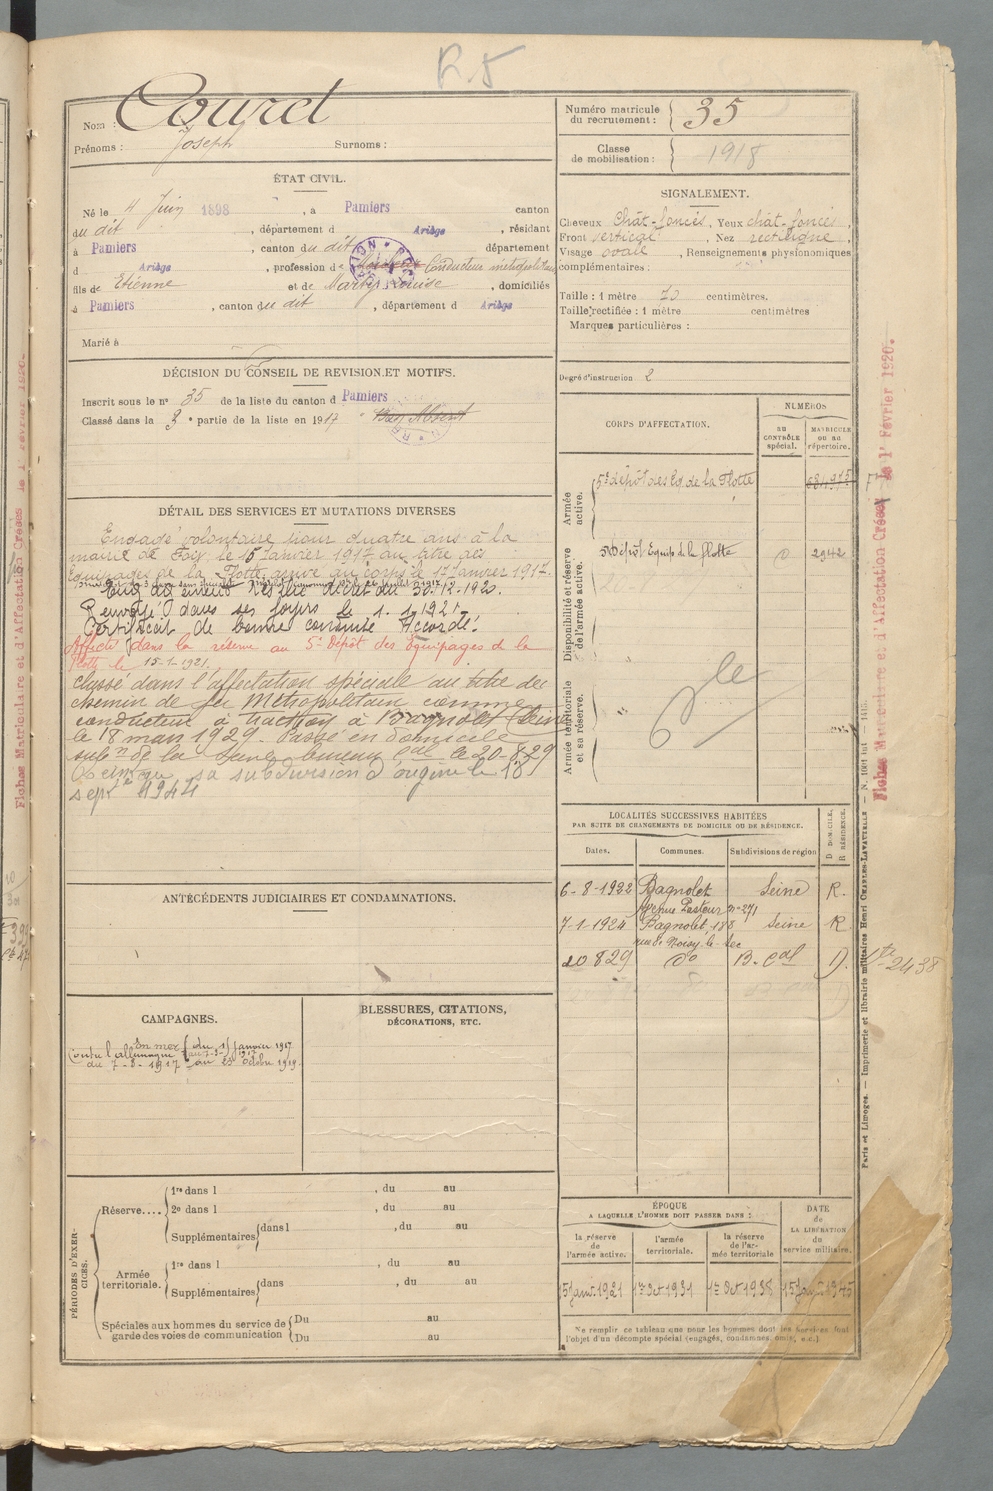 R. 5
Nom : Couret
Prénoms : Joseph Surnoms :
ÉTAT CIVIL.
Né le 4 Juin 1898, à Pamiers canton
du dit, département d Ariège, résidant
à Pamiers, canton du dit département
d Ariège, profession de Conducteur métropolitain
fils de Etienne et de Martys Louise, domiciliés
à Pamiers, canton du dit, département d Ariège
Marié à
DÉCISION DU CONSEIL DE REVISION ET MOTIFS.
Inscrit sous le n° 35 de la liste du canton d Pamiers
Classé dans la 3e partie de la liste en 1917 Bon Absent
DÉTAIL DES SERVICES ET MUTATIONS DIVERSES
Engagé volontaire pour quatre ans à la
mairie de Foix, le 15 Janvier 1917 au titre des
Equipages de la Flotte, arrivé au corps le 17 Janvier 1917.
décret du 30-12-1920.
Renvoyé dans ses foyers le 1.1.1921.
Certificat de bonne conduite Accordé.
Affecté dans la réserve au 5e Dépôt des Equipages de la
Flotte le 15-1-1921.
Classé dans l'affectation spéciale au titre des
chemin de fer Métropolitain comme
conducteur à traction à Bagnolet (Seine)
le 18 mars 1929. Passé en domicile
subn de la Seine bureau cal le 20-8-29
sa subdivision d'origine le 18
septe 1944
ANTÉCÉDENTS JUDICIAIRES ET CONDAMNATIONS.
CAMPAGNES.
En mer du 15 Janvier 1917
au 7-3-1917
Contre l'Allemagne
du 7-8-1917 au 23 Octobre 1919.
BLESSURES, CITATIONS,
DÉCORATIONS, ETC.
PÉRIODES D'EXERCICES.
Réserve....
1re dans l , du au
2e dans l , du au
Supplémentaires dans l , du au
Armée territoriale.
1re dans l , du au
Supplémentaires dans , du au
Spéciales aux hommes du service de garde des voies de communication
Du au
Du au
Numéro matricule du recrutement : 35
Classe de mobilisation : 1918
SIGNALEMENT.
Cheveux chât-foncés, Yeux chât-foncés,
Front vertical, Nez rectiligne,
Visage ovale, Renseignements physionomiques
complémentaires :
Taille : 1 mètre 70 centimètres.
Taille rectifiée : 1 mètre centimètres
Marques particulières :
Degré d'instruction 2
CORPS D'AFFECTATION.
NUMÉROS
au CONTRÔLE spécial.
MATRICULE ou au répertoire.
Armée active.
5e dépôt des Eq. de la Flotte
Disponibilité et réserve de l'armée active.
5e Dépôt Equip de la flotte 0 2942
Armée territoriale et sa réserve.
LOCALITÉS SUCCESSIVES HABITÉES
PAR SUITE DE CHANGEMENTS DE DOMICILE OU DE RÉSIDENCE.
Dates. Communes. Subdivisions de région D DOMICILE, R RÉSIDENCE.
6-8-1922 Bagnolet Seine R.
Avenue Pasteur n° 271
7-1-1924 Bagnolet, 188 Seine R
rue de Noisy-le-Sec
20 8 29 do B. cal D.
2438
ÉPOQUE
A LAQUELLE L'HOMME DOIT PASSER DANS :
la réserve de l'armée active.
l'armée territoriale.
la réserve de l'armée territoriale
DATE de LA LIBÉRATION du service militaire.
15 Janv. 1921 1er Oct 1931 1er Oct 1938 15 Janv. 1945
Ne remplir ce tableau que pour les hommes dont les services font
l'objet d'un décompte spécial (engagés, condamnés, omis, e.c.)
Fiches Matricule et d'Affectation Créées le 1er Février 1920.
Paris et Limoges. — Imprimerie et librairie militaires Henri CHARLES-LAVAUZELLE
Fiches Matriculaire et d'Affectation Créées le 1 Février 1920.